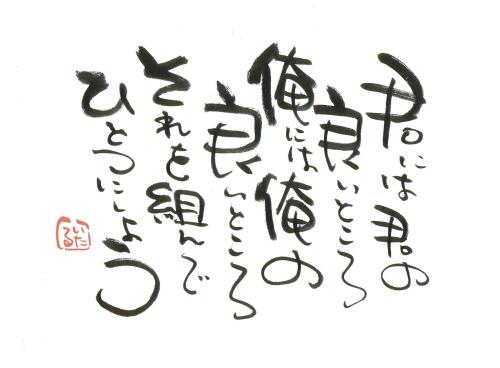 君には君の
良いところ
俺には俺の
良いところ
それを組んで
ひとつにしよう
いたる